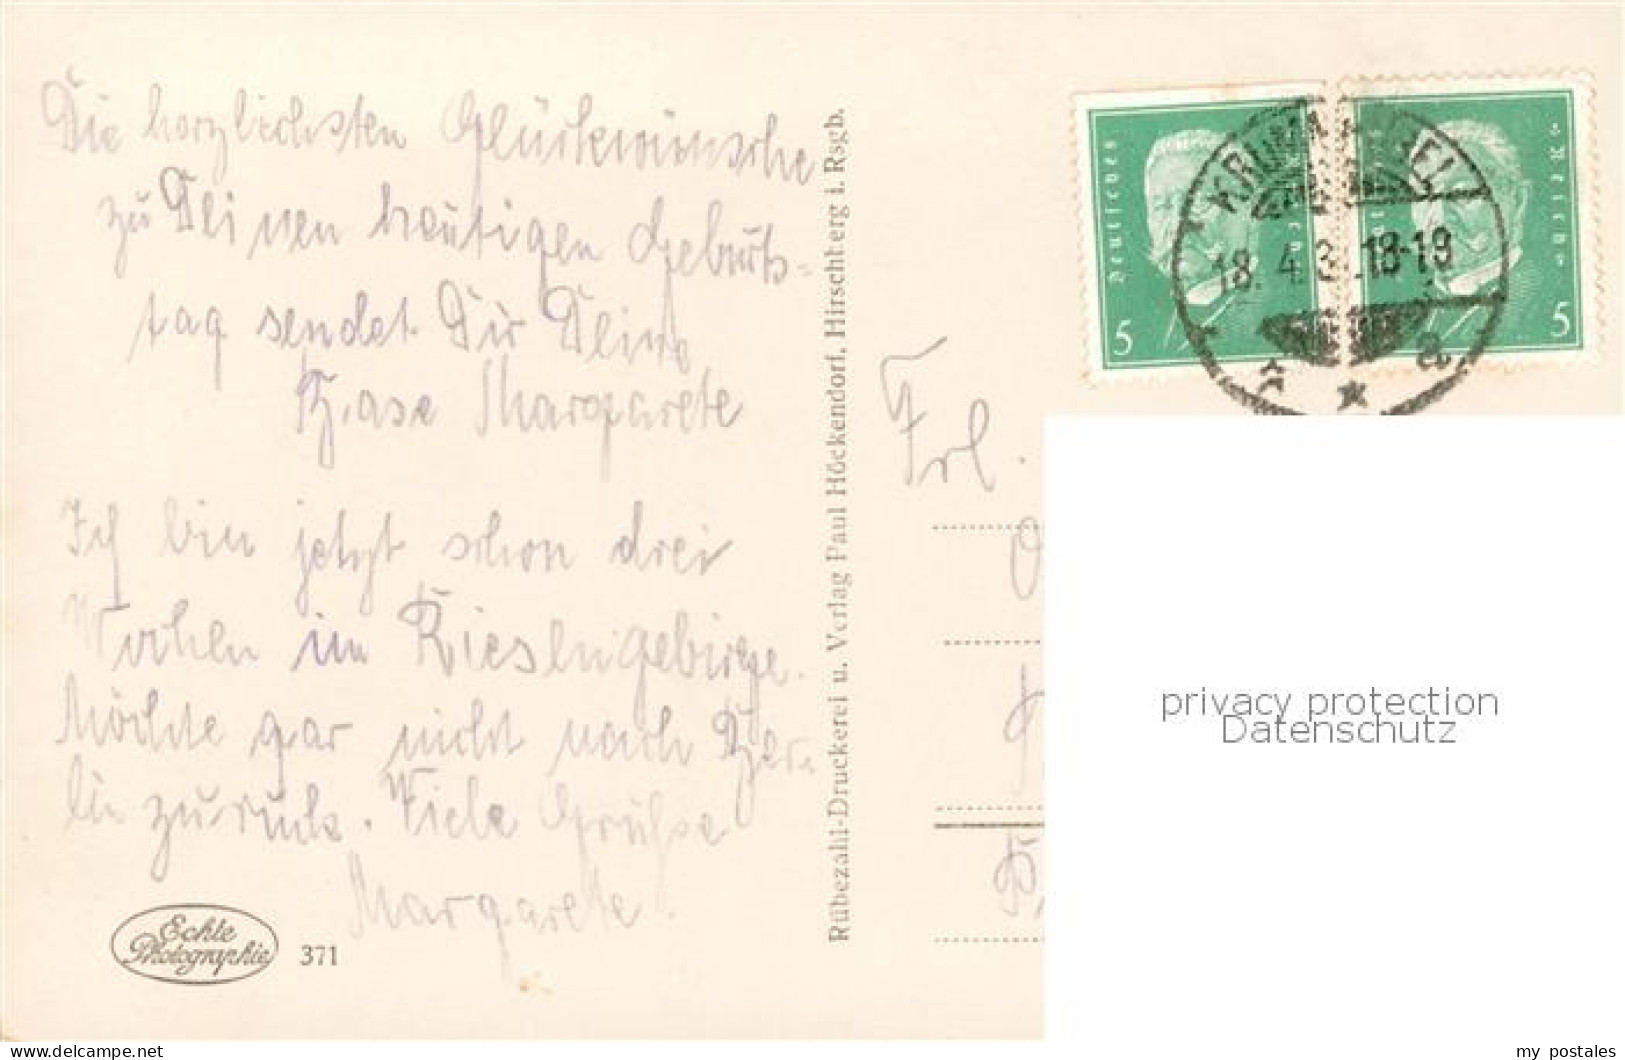 Die herzlichsten Glückwünsche
zu Deinen heutigen Geburts-
tag sendet Dir Deine
Base Margarete
Ich bin jetzt schon drei
Wochen im Riesengebirge.
Möchte gar nicht nach Ber-
lin zurück. Viele Grüße
Margarete.
Echte
Photographie
371
Rübezahl-Druckerei u. Verlag Paul Höckendorf, Hirschberg i. Rsgb.
Deutsches Reich
5
Deutsches Reich
5
KRUMMHÜBEL
18.4.3 .18-19
a
Frl.
privacy protection
Datenschutz
www.delcampe.net
my_postales